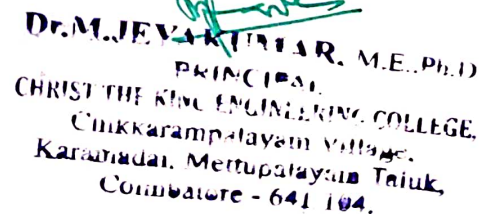 Dr.M.JEYAKUMAR. M.E.,Ph.D
PRINCIPAL
CHRIST THE KING ENGINEERING COLLEGE,
Chikkarampalayam Village,
Karamadai, Mettupalayam Taluk,
Coimbatore - 641 104.